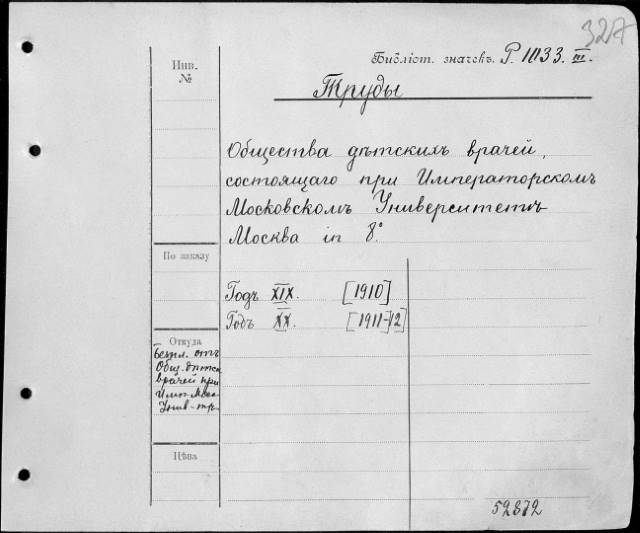 327
Библіот. значекъ. Р. 1033. III.
Инв.
№
Труды
Общества дѣтскихъ врачей,
состоящаго при Императорскомъ
Московскомъ Университетѣ
Москва in 8°.
По заказу
Годъ XIX. [1910]
Годъ XX. [1911-12]
Откуда
Безпл. отъ
Общ. дѣтск.
врачей при
Имп. Моск.
Унив-тѣ
Цѣна
52872